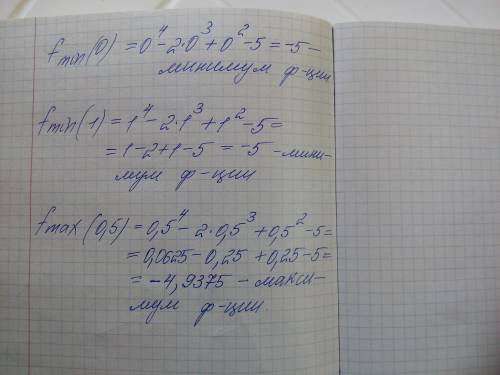 fmin(0) = 0⁴ - 2·0³ + 0² - 5 = -5 -
минимум ф-ции
fmin(1) = 1⁴ - 2·1³ + 1² - 5 =
= 1 - 2 + 1 - 5 = -5 - мини-
мум ф-ции
fmax(0,5) = 0,5⁴ - 2·0,5³ + 0,5² - 5 =
= 0,0625 - 0,25 + 0,25 - 5 =
= -4,9375 - макси-
мум ф-ции.